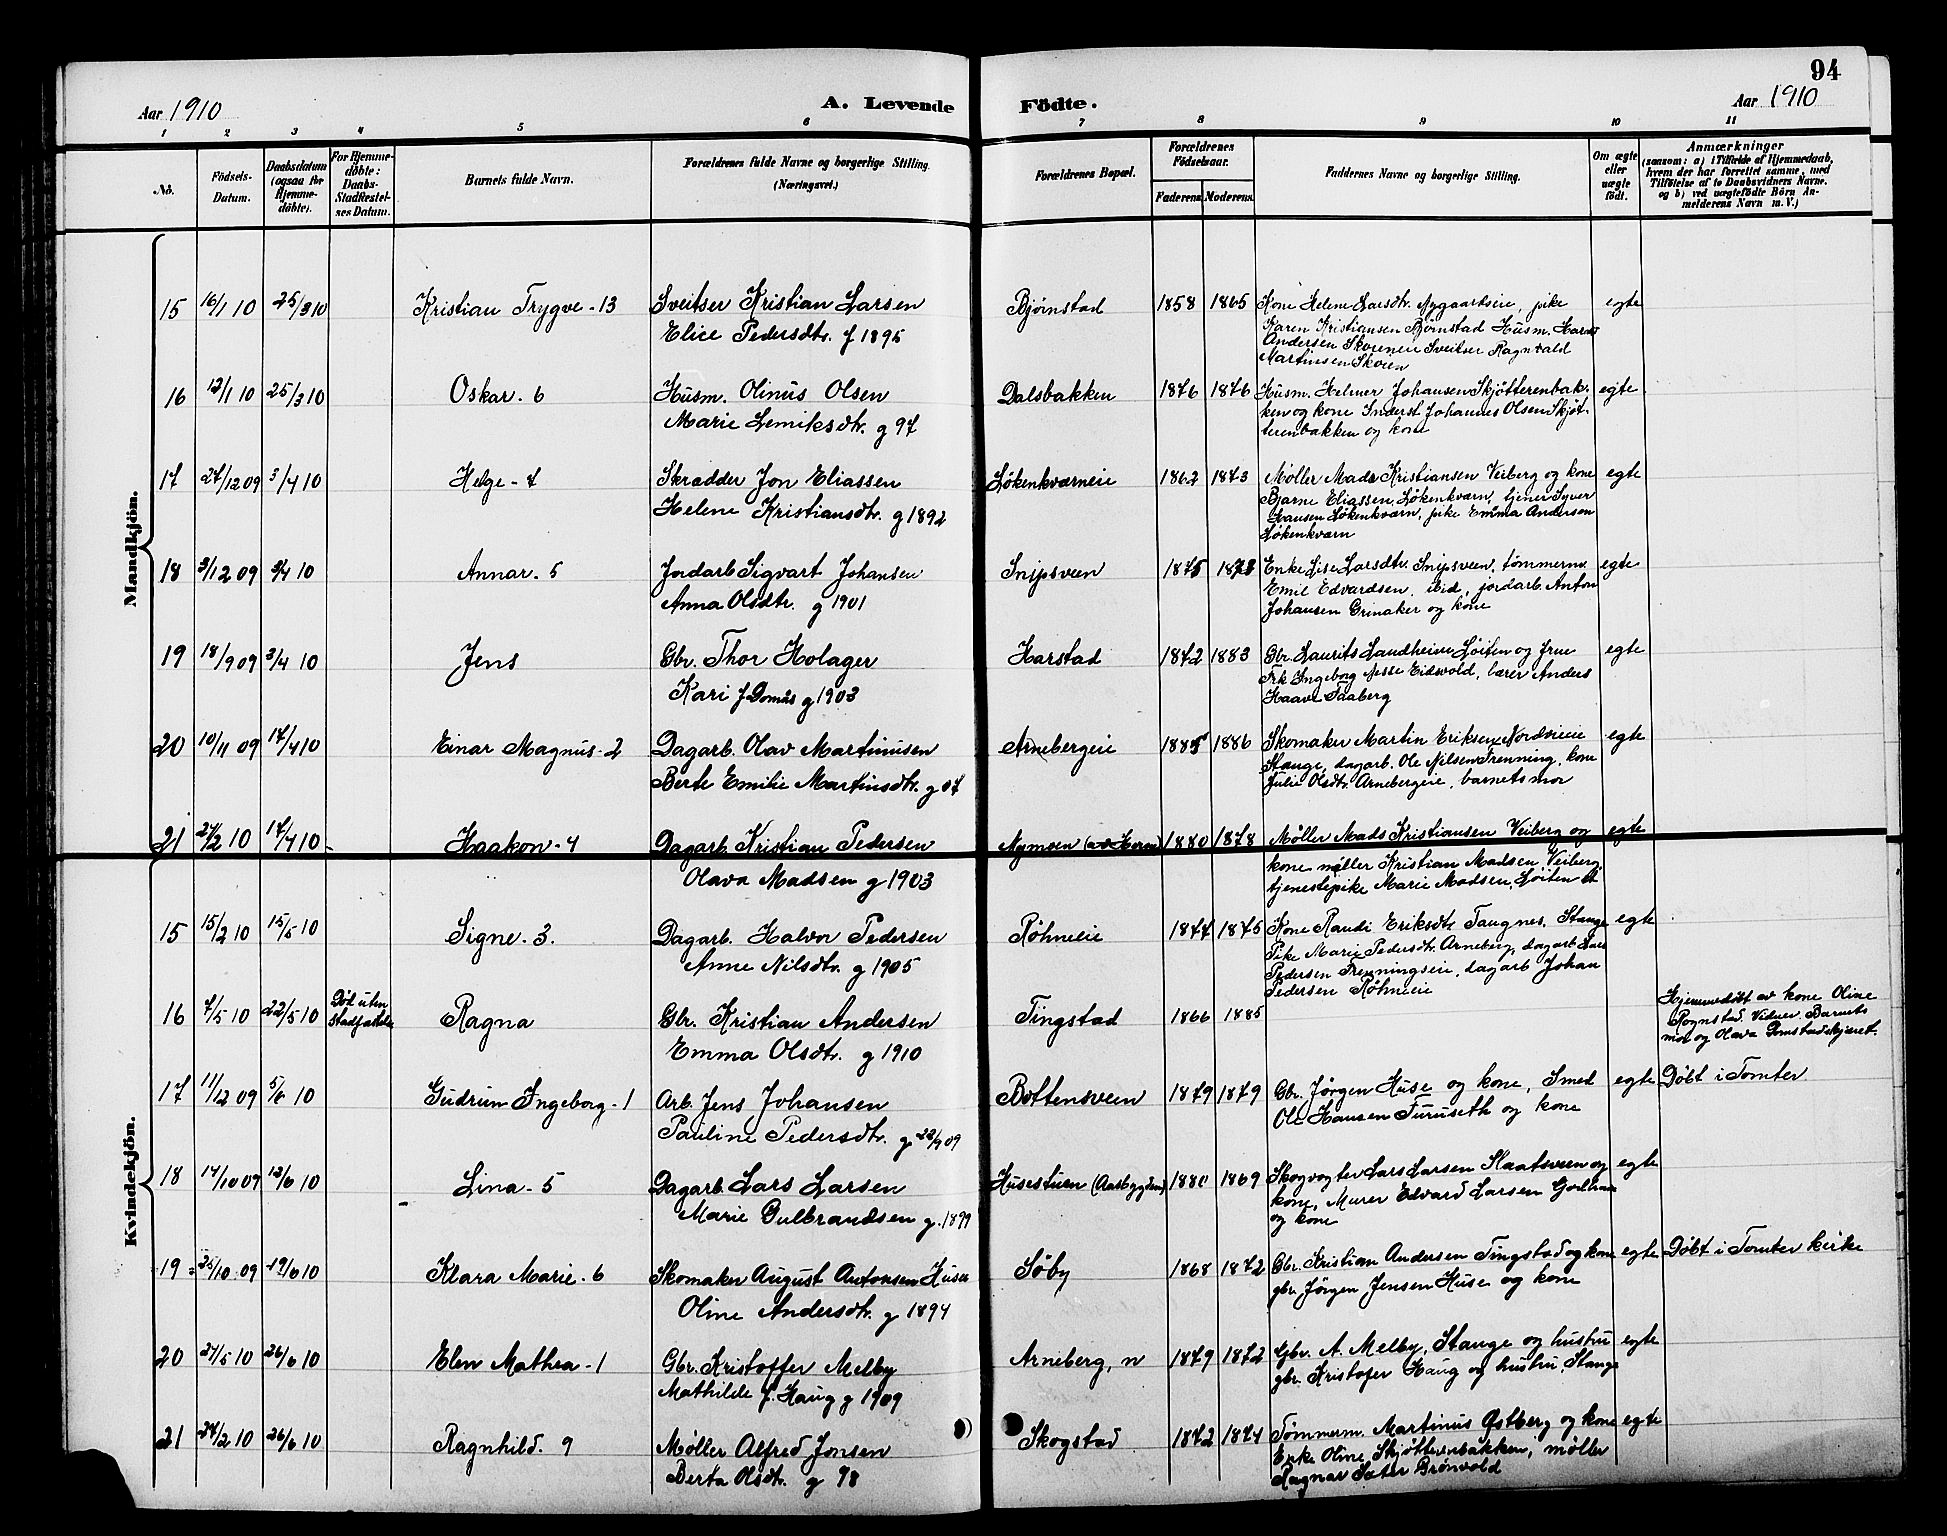 94
Aar 1910 A. Levende Födte. Aar 1910
1 2 3 4 5 6 7 8 9 10 11
No.
Födsels-
Datum.
Daabsdatum
(ogsaa for
Hjemme-
döbte).
For Hjemme-
döbte:
Daabs-
Stadfæstel-
ses Datum.
Barnets fulde Navn.
Forældrenes fulde Navne og borgerlige Stilling.
(Næringsvei.)
Forældrenes Bopæl.
Forældrenes
Födselsaar.
Faderens Moderens
Faddernes Navne og borgerlige Stilling.
Om ægte
eller
uægte
födt.
Anmærkninger
(saasom: a) i Tilfælde af Hjemmedaab,
hvem der har forrettet samme, med
Tilföielse af to Daabsvidners Navne.
og b) ved uægtefödte Börn An-
melderens Navn m. V.)
Mandkjön.
15 16/1 10 25/3 10 Kristian Trygve - 13 Sveitser Kristian Larsen Bjørnstad 1858 1865 Kone Helene Larsdtr. Nygaardseie, pike egte
Elice Pedersdtr. g 1895 Karen Kristiansen Bjørnstad Husm. Harald
Andersen Skoreneie Sveitser Ragnvald
Martinsen Skoien
16 12/1 10 25/3 10 Oskar - 6 Husm. Olinus Olsen Dalsbakken 1876 1876 Husm. Helmer Johansen Skjøtterenbak- egte
Marie Lemiksdtr. g 97 ken og kone Inderst Johannes Olsen Skjøt-
terenbakken og kone
17 27/12 09 3/4 10 Helge - 7 Skrædder Jon Eliassen Løkenkværneie 1862 1873 Møller Mads Kristiansen Veiberg og kone egte
Helene Kristiansdtr. g 1892 Bjarne Eliassen Løkenkværn, tjener Syver
Hansen Løkenkværn, pike Emma Andersen
Løkenkværn
18 3/12 09 3/4 10 Annar - 5 Jordarb. Sigvart Johansen Snipsveen 1875 1873 Enke Lise Larsdtr. Snipsveen, tømmerm. egte
Anna Olsdtr. g 1901 Emil Edvardsen, ibid, jordarb. Anton
Johansen Grinaker og kone
19 18/9 09 3/4 10 Jens Gbr. Thor Holager Harstad 1872 1883 Gbr. Laurits Landheim Løiten og frue egte
Kari f Domås g 1903 Frk Ingeborg Nesse Eidsvold, lærer Anders
Haave Faaberg
20 10/11 09 17/4 10 Einar Magnus - 2 Dagarb. Olav Martinusen Arnebergeie 1885 1886 Skomaker Martin Eriksen Nordvieie egte
Berte Emilie Martinsdtr. g 07 Stange, dagarb. Ole Nilsen Frenning, kone
Julie Olsdtr. Arnebergeie, barnets mor
21 27/2 10 17/4 10 Haakon - 4 Dagarb. Kristian Pedersen Nymoen 1880 1878 Møller Mads Kristiansen Veiberg og egte
Olava Madsen g 1903 kone møller Kristian Madsen Veiberg
tjenestepike Marie Madsen, Løiten
Kvindekjön.
15 15/2 10 15/5 10 Signe - 3. Dagarb. Halvor Pedersen Røhneeie 1877 1875 Kone Randi Eriksdtr. Taugnes, Stange egte
Anne Nilsdtr. g 1905 Pike Marie Pedersdtr. Arneberg, dagarb. Lars
Pedersen Frenningseie, dagarb Johan
Pedersen Røhneeie
16 7/5 10 22/5 10 Død uten Ragna Gbr. Kristian Andersen Tingstad 1866 1885 Hjemmedøbt av kone Oline
stadfæstelse Emma Olsdtr. g 1910 Rognstad. Vidner Barnets
mor og Olava
17 11/12 09 5/6 10 Gudrun Ingeborg - 1 Arb. Jens Johansen Bottensveen 1879 1879 Gbr. Jørgen Huse og kone, Smed egte Døbt i Tomter
Pauline Pedersdtr. g 22/9 09 Ole Hansen Furuseth og kone
18 17/10 09 12/6 10 Lina - 5 Dagarb. Lars Larsen Husesturn (Aasbygden) 1880 1869 Skogvogter Lars Larsen Slaatsveen og egte
Marie Gulbrandsen g. 1899 kone, Murer Edvard Larsen
og kone
19 25/10 09 19/6 10 Klara Marie - 6 Skomaker August Antonsen Huse Søby 1868 1872 Gbr. Kristian Andersen Tingstad og kone egte Døbt i Tomter kirke
Oline Andersdtr. g 1894 gbr. Jørgen Jensen Huse og kone
20 27/5 10 26/6 10 Elen Mathea - 1 Gbr. Kristoffer Melby Arneberg, n 1879 1872 Gbr. A. Melby, Stange og hustru egte
Mathilde f. Haug g 1909 gbr. Kristofer Haug og hustru, Stange
21 24/2 10 26/6 10 Ragnhild. 9 Møller Alfred Jonsen Skogstad 1872 1874 Tømmerm. Martinus Østberg og kone egte
Berta Olsdtr. g 98 Enke Oline Skjøtterenbakken, møller
Ragnar Sæter Grønvold